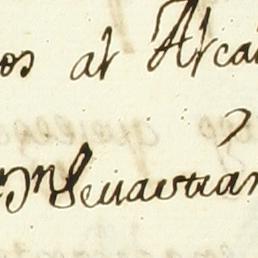 os al Alcal
Dn Seuastian